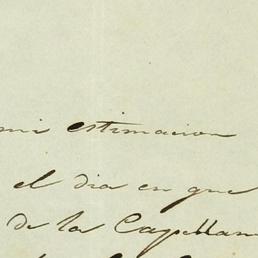 mi estimacion
el dia en que
de la Capellan